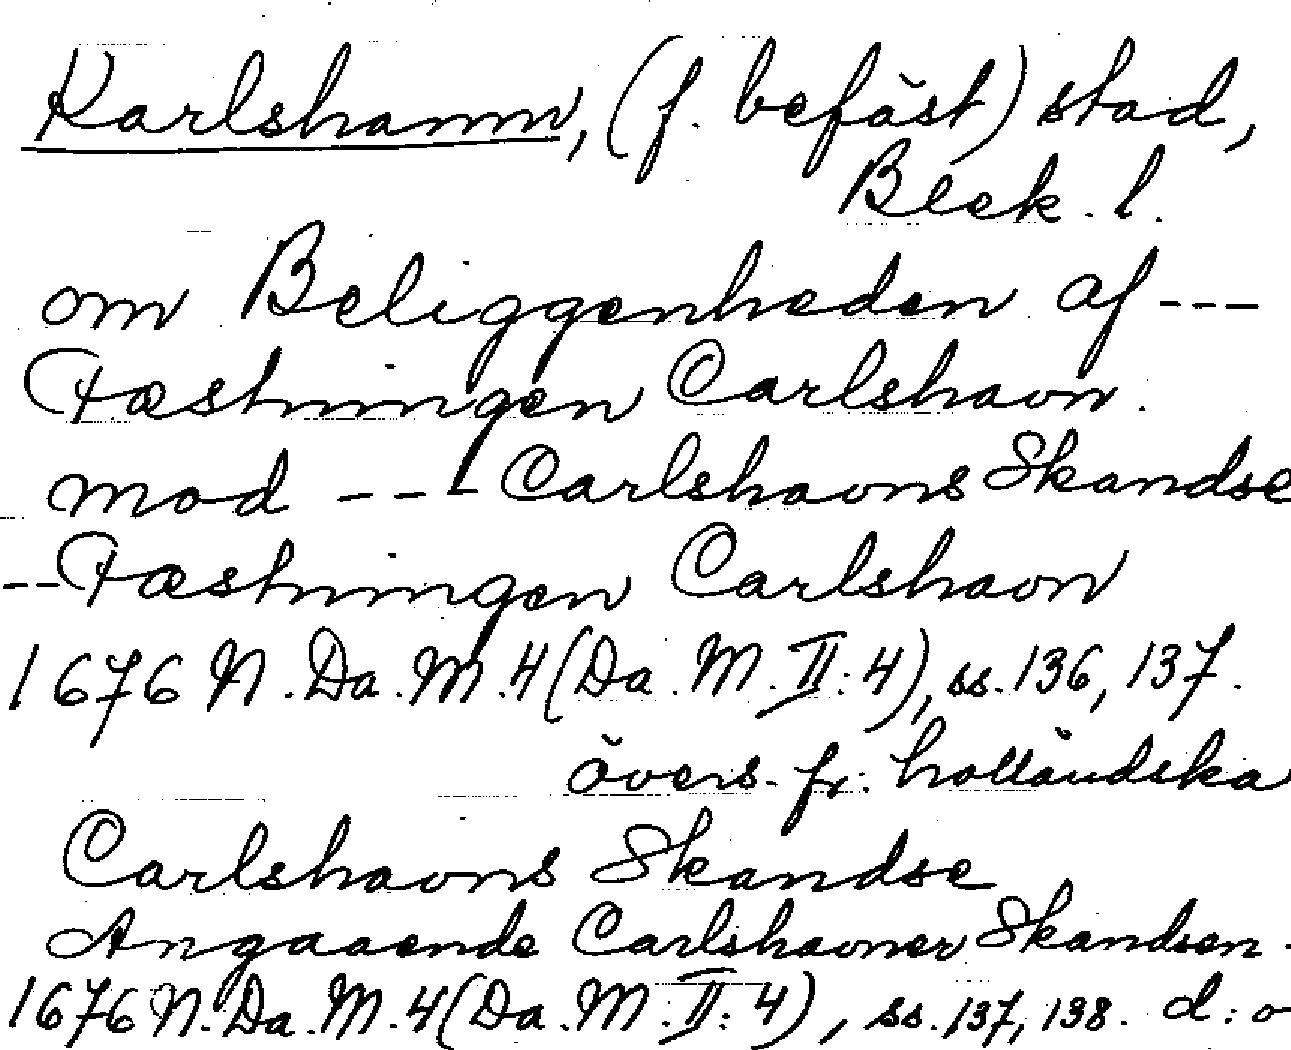 Karlshamn, (f. befäst) stad,
Blek. l.
om Beliggenheden af ---
Fæstningen Carlshavn.
mod --- Carlshavns Skandse
-- Fæstningen Carlshavn
1676 N. Da. M. 4 (Da. M. II: 4), ss. 136, 137.
övers. fr. holländska
Carlshavns Skandse
Angaaende Carlshavner Skandsen -
1676 N. Da. M. 4 (Da. M. II: 4), ss. 137, 138. d:o